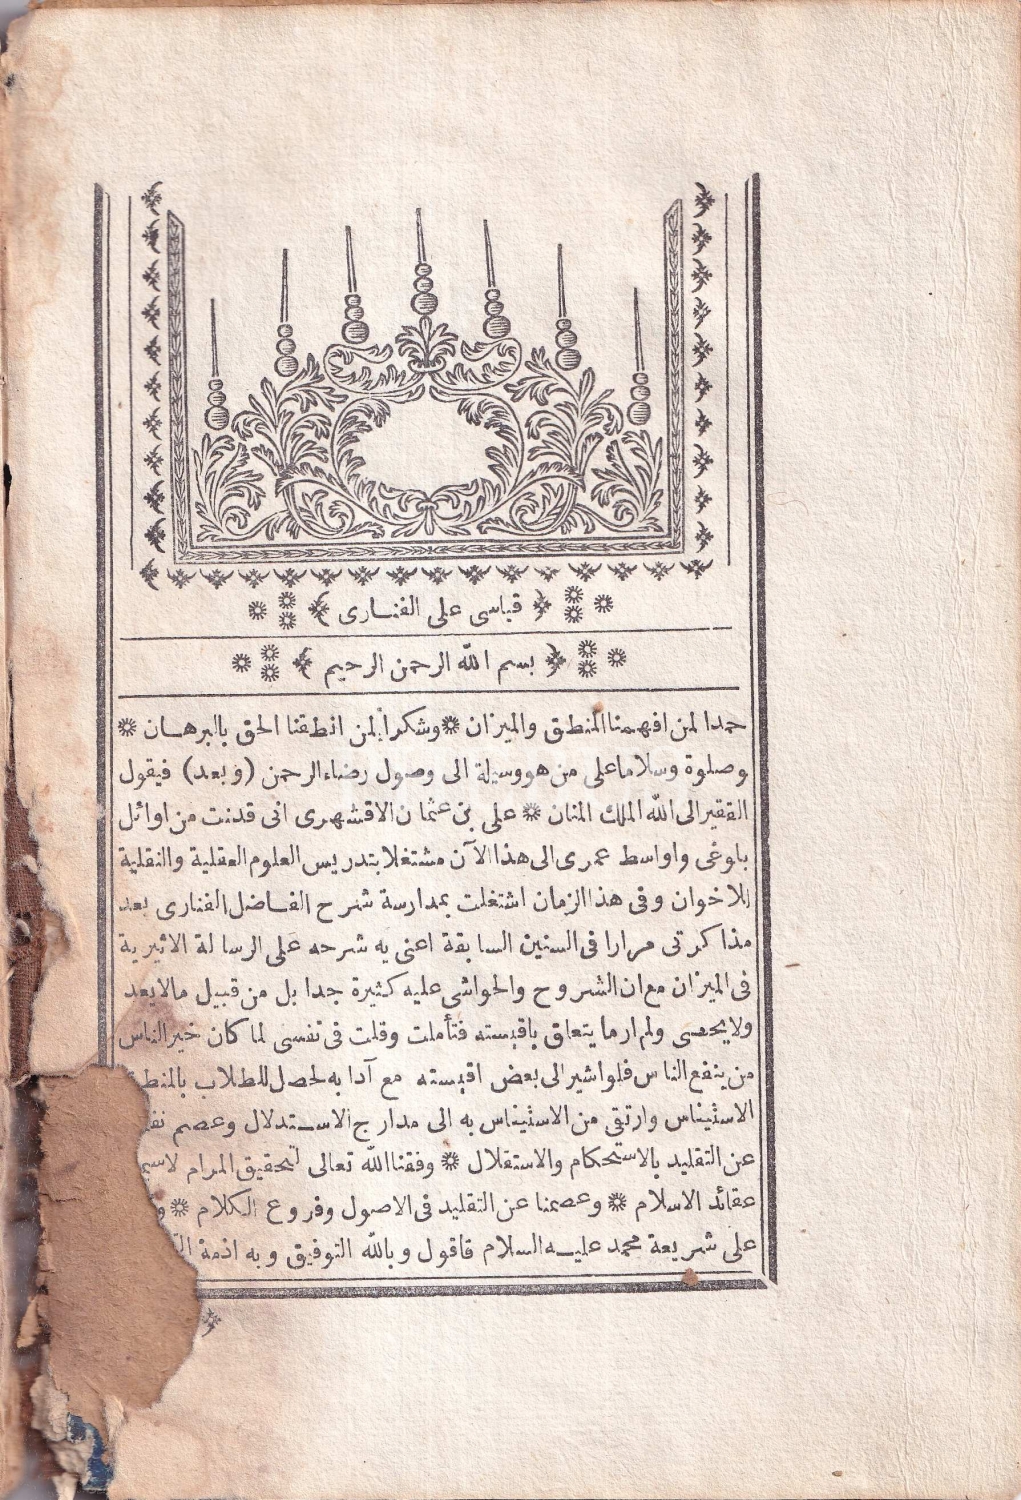 ❋ ❋❋ ﴿ قياسى على الفنارى ﴾ ❋❋ ❋
❋ ❋❋ ﴿ بسم الله الرحمن الرحيم ﴾ ❋❋ ❋
حمدا لمن افهمنا المنطق والميزان ❋ وشكرا لمن انطقنا الحق بالبرهان ❋
وصلوة وسلاما على من هو وسيلة الى وصول رضاء الرحمن (وبعد) فيقول
الفقير الى الله الملك المنان ❋ على بن عثمان الاقشهرى انى قد نت من اوائل
بلوغى واواسط عمرى الى هذا الآن مشتغلا بتدريس العلوم العقلية والنقلية
للاخوان وفى هذا الزمان اشتغلت بمدارسة شرح الفاضل الفنارى بعد
مذاكرتى مرارا فى السنين السابقة اعنى به شرحه على الرسالة الاثيرية
فى الميزان مع ان الشروح والحواشى عليه كثيرة جدا بل من قبيل ما لا يعد
ولا يحصى ولم ار ما يتعلق باقيسته فتأملت وقلت فى نفسى لما كان خير الناس
من ينفع الناس فلو اشير الى بعض اقيسته مع آدابه لحصل للطلاب
الاستيناس وارتقى من الاستيناس به الى مدارج الاستدلال وعصم
عن التقليد بالاستحكام والاستقلال ❋ وفقنا الله تعالى لتحقيق المرام
عقائد الاسلام ❋ وعصمنا عن التقليد فى الاصول وفروع الكلام ❋
على شريعة محمد عليه السلام فاقول وبالله التوفيق وبه ازمة